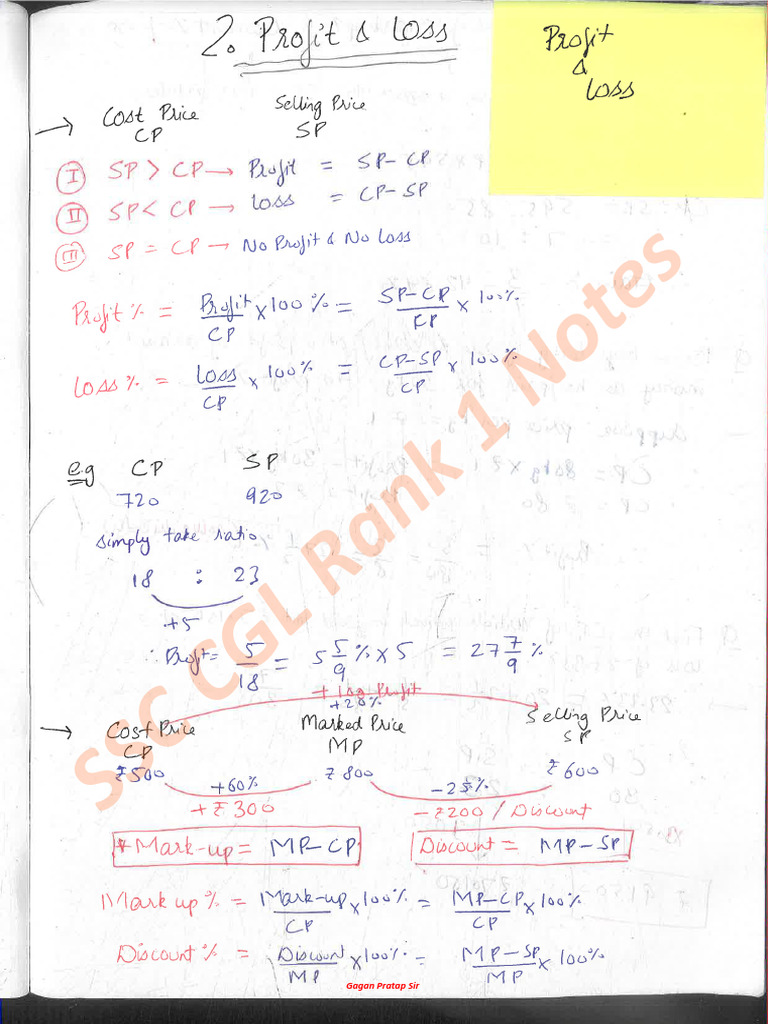 2. Profit & Loss
Profit
&
Loss
→ Cost Price Selling Price
CP SP
I SP > CP → Profit = SP - CP
II SP < CP → Loss = CP - SP
III SP = CP → No Profit & No Loss
Profit % = Profit/CP × 100% = SP-CP/CP × 100%
Loss % = Loss/CP × 100% = CP-SP/CP × 100%
e.g CP SP
720 920
simply take ratio
18 : 23
+5
∴ Profit = 5/18 = 5 5/9 % × 5 = 27 7/9 %
+20%
→ Cost Price Marked Price Selling Price
CP MP SP
₹500 ₹800 ₹600
+60% -25%
+₹300 -₹200 / Discount
* Mark-up = MP - CP Discount = MP - SP
Mark up % = Mark-up/CP × 100% = MP-CP/CP × 100%
Discount % = Discount/MP × 100% = MP-SP/MP × 100%
SSC CGL Rank 1 Notes
Gagan Pratap Sir